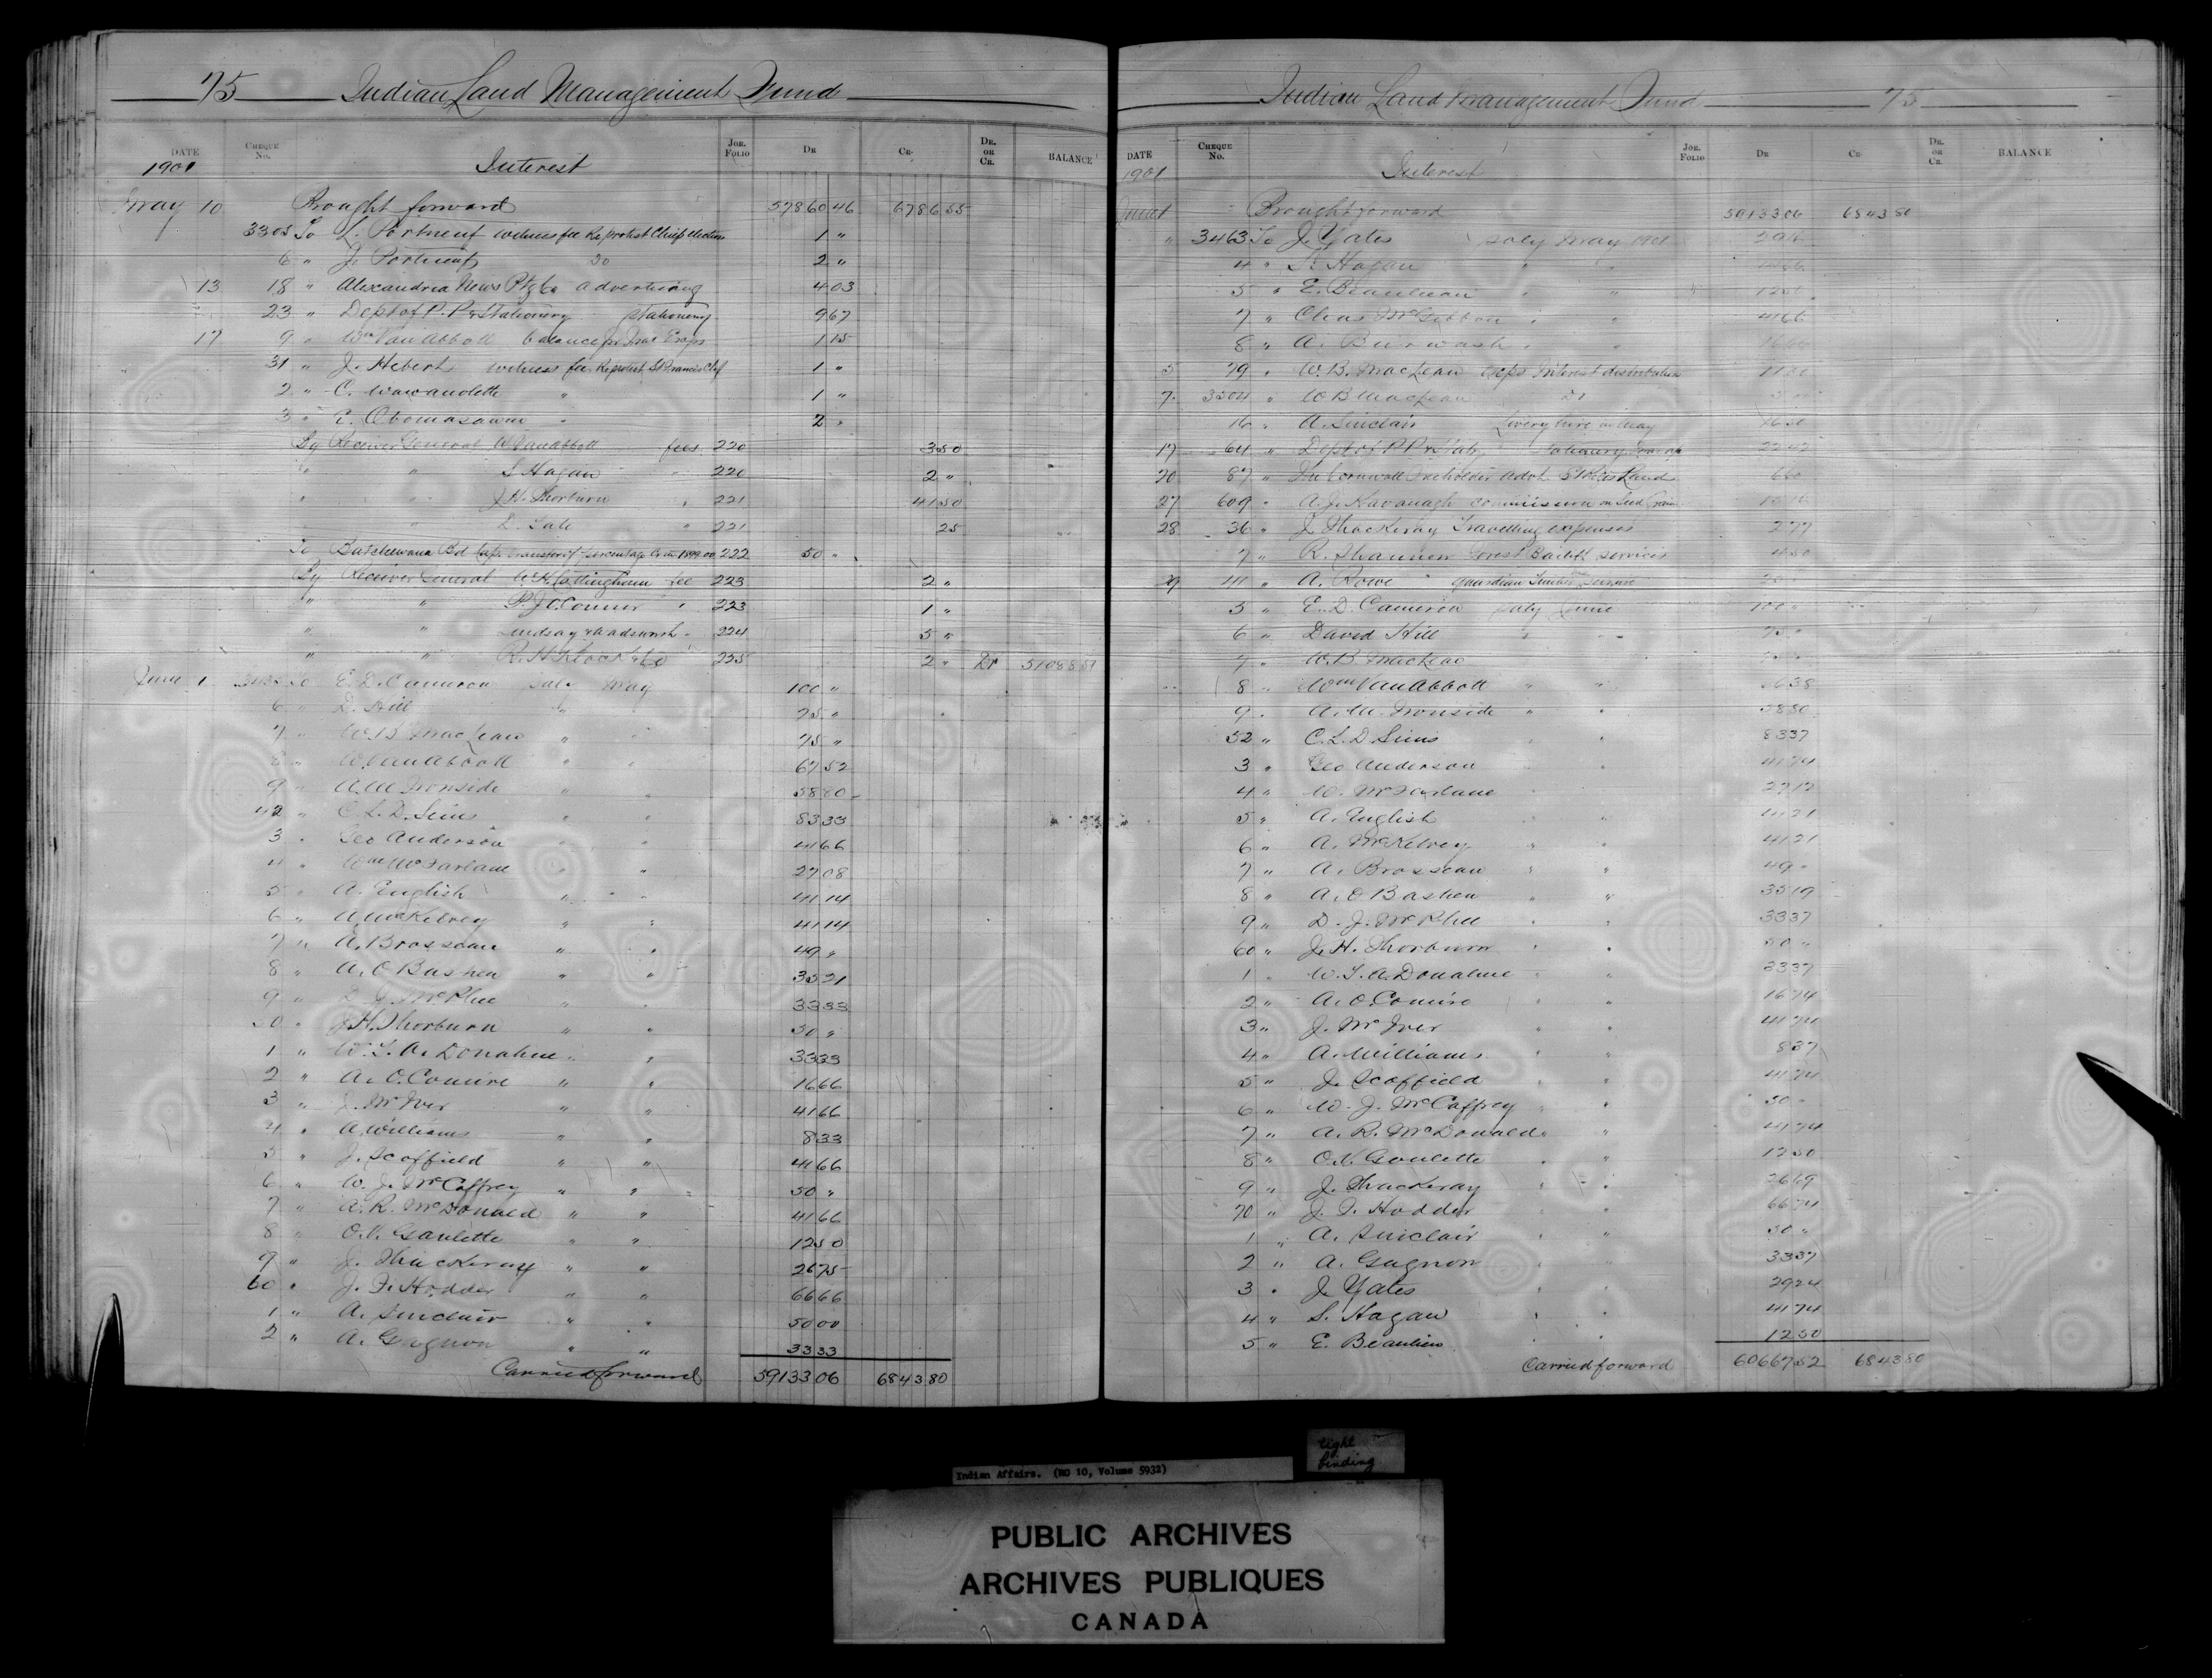 75 Indian Land Management Fund
DATE CHEQUE No. JOR. FOLIO DR CR. DR. OR CR. BALANCE
1901 Interest
May 10 Brought forward 57860 46 6786 55
3305 To L. Portneuf witness fee Re protest Chief election 1 "
6 " J. Portneuf do 2 "
13 18 " Alexandria News Ptg Co advertising 4 03
23 " Dept of P. P. & Stationery Stationery 9 67
17 9 " Wm Van Abbott balance for Exps 1 15
31 " J. Hebert witness fee Re protest St Francis Chf 1 "
2 " C. Wawanolette " 1 "
3 " E. Obomasawin " 2 "
By Receiver General W Van Abbott fees 220 3 50
" " S Hagan " 220 2 "
" " J. H. Thorburn " 221 41 50
" " D. " 221 25
To Batchewana Bd Cap. transfer of percentage 1899.00 222 50 "
By Receiver General W. H. Cottingham fee 223 2 "
" " P. J. O'Connor " 223 1 "
" " Lindsay & Wadsworth " 224 5 "
" " R. H. Klock & Co 225 2 " Dr 51088 51
June 1 To E. D. Cameron Saly May 100 "
6 " D. Hill " 75 "
7 " W. B. MacLean " " 75 "
8 " W. Van Abbott " " 67 52
9 " A. M. Ironside " " 58 80
42 " C. L. D. Sims " " 83 33
3 " Geo Anderson " " 41 66
4 " Wm McFarlane " " 27 08
5 " A. English " " 41 14
6 " A. McKelvey " " 41 14
7 " A. Brosseau " " 49 "
8 " A. O Bastien " " 35 21
9 " D. J. McPhee " " 33 33
50 " J. H. Thorburn " " 50 "
1 " W. T. A. Donahue " " 33 33
2 " A. O. Comire " " 16 66
3 " J. McIver " " 41 66
4 " A. Williams " " 8 33
5 " J. Scoffield " " 41 66
6 " W. J. McCaffrey " " 50 "
7 " A. R. McDonald " " 41 66
8 " O. V. Goulette " " 12 50
9 " J. Thackeray " " 26 75
60 " J. F. Hodder " " 66 66
1 " A. Sinclair " " 50 00
2 " A. Gagnon " " 33 33
Carried forward 59133 06 6843 80
Indian Land Management Fund 75
DATE CHEQUE No. JOR. FOLIO DR CR. DR. OR CR. BALANCE
1901 Interest
June 1 Brought forward 59133 06 6843 80
" 3463 To J. Yates Saly May 1901 29 16
4 " S. Hagan " "
5 " E. Beaulieu " " 12 50
7 " Chas McGibbon " " 41 66
8 " A. Burwash " " 16 66
5 79 " W. B. MacLean exps Interest distribution
7 3504 " W B MacLean Do
16 " A. Sinclair Livery hire in May
17 64 " Dept of P. P. & Staty Stationery
20 87 " The Cornwall Freeholder Advt. St Regis Land 6 60
27 609 " A. J. Kavanagh commission on Seed Grain
28 36 " J Thackeray Travelling expenses 2 77
7 " R. Shannon Forest Bailiff services 4 50
29 41 " A. Rowe " guardian timber
5 " E. D. Cameron Saly June 100 "
6 " David Hill " " 75 "
7 " W. B MacLean
8 " Wm Van Abbott " "
9 " A. M. Ironside " " 58 80
52 " C. L. D Sims " " 83 37
3 " Geo Anderson " 41 74
4 " W. McFarlane " 27 12
5 " A. English " " 41 21
6 " A. McKelvey " " 41 21
7 " A. Brosseau " " 49 "
8 " A. O Bastien " " 35 19
9 " D. J. McPhee " " 33 37
60 " J. H. Thorburn " " 50 "
1 " W. T. A. Donahue " " 33 37
2 " A. O. Comire " " 16 74
3 " J. McIver " " 41 74
4 " A. Williams " " 8 37
5 " J. Scoffield " " 41 74
6 " W. J. McCaffrey " " 50 "
7 " A. R. McDonald " " 41 74
8 " O. V. Goulette " " 12 50
9 " J. Thackeray " " 26 69
70 " J. F. Hodder " " 66 74
1 " A. Sinclair " " 50 "
2 " A. Gagnon " " 33 37
3 " J. Yates " " 29 24
4 " S. Hagan " " 41 74
5 " E. Beaulieu " " 12 50
Carried forward 60667 52 6843 80
tight binding
Indian Affairs. (RG 10, Volume 5932)
PUBLIC ARCHIVES
ARCHIVES PUBLIQUES
CANADA